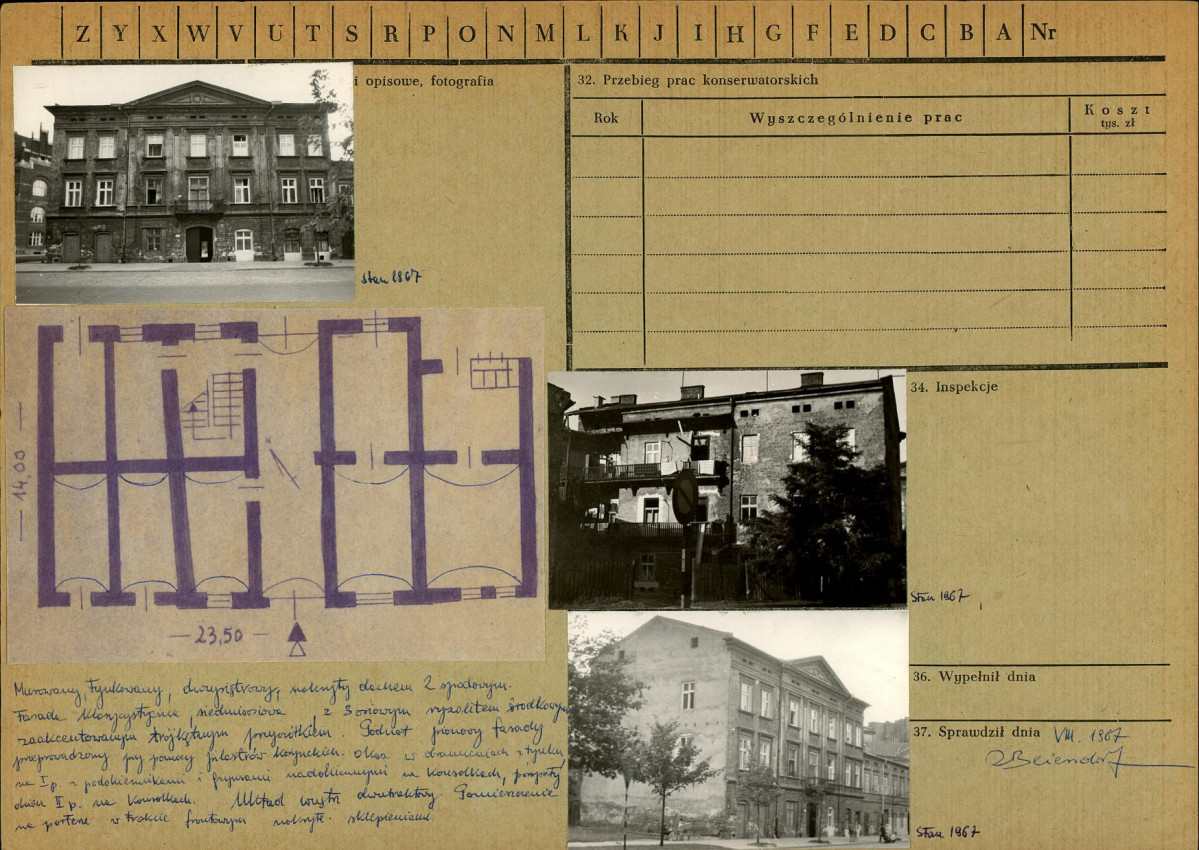 Z Y X W V U T S R P O N M L K J I H G F E D C B A Nr
i opisowe, fotografia
32. Przebieg prac konserwatorskich
Rok Wyszczególnienie prac Koszt
tys. zł
stan 1967
14,00
N
23,50
34. Inspekcje
Stan 1967
36. Wypełnił dnia
37. Sprawdził dnia VIII. 1967
Stan 1967
Murowany, tynkowany, dwupiętrowy, nakryty dachem 2 spadowym.
Fasada klasycystyczna, siedmioosiowa, z 3 osiowym ryzalitem środkowym
zaakcentowanym trójkątnym przyczółkiem. Podział pionowy fasady
przeprowadzony przy pomocy pilastrów korynckich. Okna w obramieniach z tynku,
na I p. z podokiennikami i gzymsami nadokiennymi na konsolkach,
okien II p. na konsolkach. Układ wnętrz dwutraktowy. Pomieszczenie
na parterze w trakcie frontowym nakryte sklepieniami.